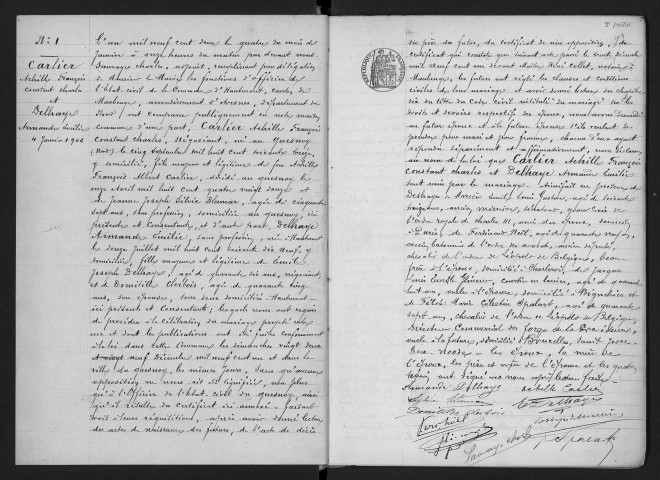 N° 1
Cartier
Achille François
constant charles
et
Delhaye
Armande Emilie
4 Janvier 1902
L'an mil neuf cent deux le quatre du mois de
Janvier à onze heures du matin par devant nous
Sauvage charles, adjoint, remplissant par délégation
de Monsieur le Maire les fonctions d'officier de
l'état civil de la Commune d'Hautmont, canton de
Maubeuge, arrondissement d'Avesnes, département du
Nord, ont comparu publiquement en notre maison
commune d'une part, Cartier Achille François
Constant Charles, négociant, né au quesnoy
le cinq septembre mil huit cent soixante
y domicilié, fils majeur et légitime de feu Achille
François Albert Cartier, décédé au quesnoy le
onze Avril mil huit cent quatre vingt onze et
de Jeanne Joseph Silvie agée de cinquante
sept ans, sans profession, domiciliée au quesnoy, ici
présente et Consentante, et d'autre part, Delhaye
Armande Emilie, sans profession, née à Hautmont
le douze Juillet mil huit cent soixante dix neuf, y
domiciliée, fille majeure et légitime de Emile
Joseph Delhaye, agé de quarante six ans, négociant,
et de Domitille Artois, agée de quarante cinq
ans, son épouse, tous deux domiciliés à Hautmont
ici présents et Consentants, lesquels nous ont requis
de procéder à la célébration du mariage projeté entre
eux et dont les publications ont été faites conformément
à la loi dans cette Commune les dimanches vingt deux
et vingt neuf Décembre mil neuf cent un et dans la
ville du quesnoy, les mêmes jours, sans qu'aucune
opposition ne nous ait été signifiée, non plus
qu'à l'officier de l'état civil du quesnoy, ainsi
qu'il résulte du certificat ici annexé. faisant
droit à leurs réquisitions, après avoir donné lecture
des actes de naissance des futurs, de l'acte de décès
du père du futur, du certificat de non opposition, du
certificat qui constate que suivant acte passé le trente décembre
mil neuf cent un devant Maître René Collet, notaire à
Maubeuge, les futurs ont réglé les clauses et conditions
civiles de leur mariage et avoir donné lecture du chapitre
six du titre du code civil intitulé du mariage sur les
droits et devoirs respectifs des époux, nous avons demandé
au futur époux et à la future épouse s'ils veulent se
prendre pour mari et pour femme, chacun d'eux ayant
répondu séparément et affirmativement, nous déclarons
au nom de la loi que Cartier Achille François
Constant Charles et Delhaye Armande Emilie
sont unis par le mariage. Ainsi fait en présence de
agé de soixante
Charles III
à Paris, de Ferdinand Noël, agé de quarante neuf ans,
avocat
chevalier de l'ordre de Léopold de Belgique, beau
frère de l'époux, domicilié à Charleroi, de Jacques
agé de quarante
huit ans, oncle de l'épouse, domicilié à
et de Félix Marie Célestin Spalart, agé de quarante
sept ans, chevalier de l'ordre de Léopold de Belgique,
Directeur Commercial des forges de la Providence,
oncle à la future, domicilié à Bruxelles, Saint Josse-
ten-noode. les époux, la mère de
l'époux, les père et mère de l'épouse et les quatre
témoins ont signé avec nous après lecture faite.
Armande Delhaye
Achille Cartier
Domitille Artois
E Delhaye
F. Spalart